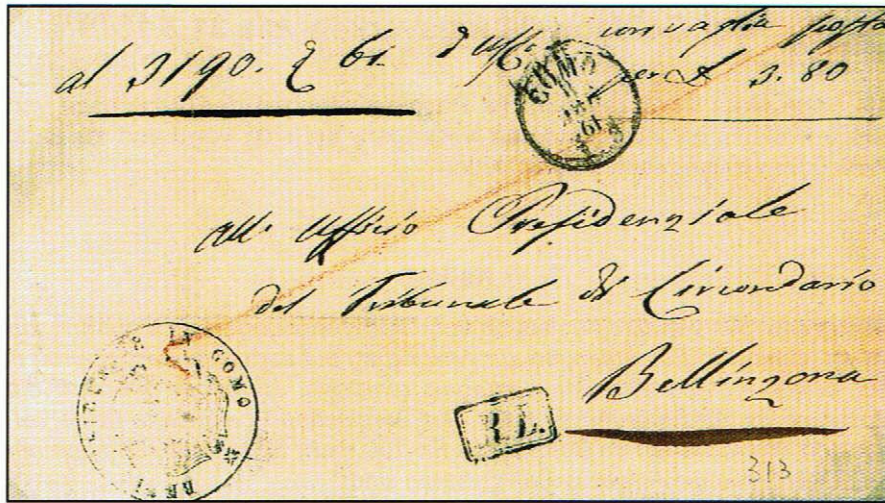 al 3190. con vaglia
per £ 3.80
COMO
61
All' Ufficio Presidenziale
del Tribunale di Circondario
Bellinzona
IN COMO
R.L.
313